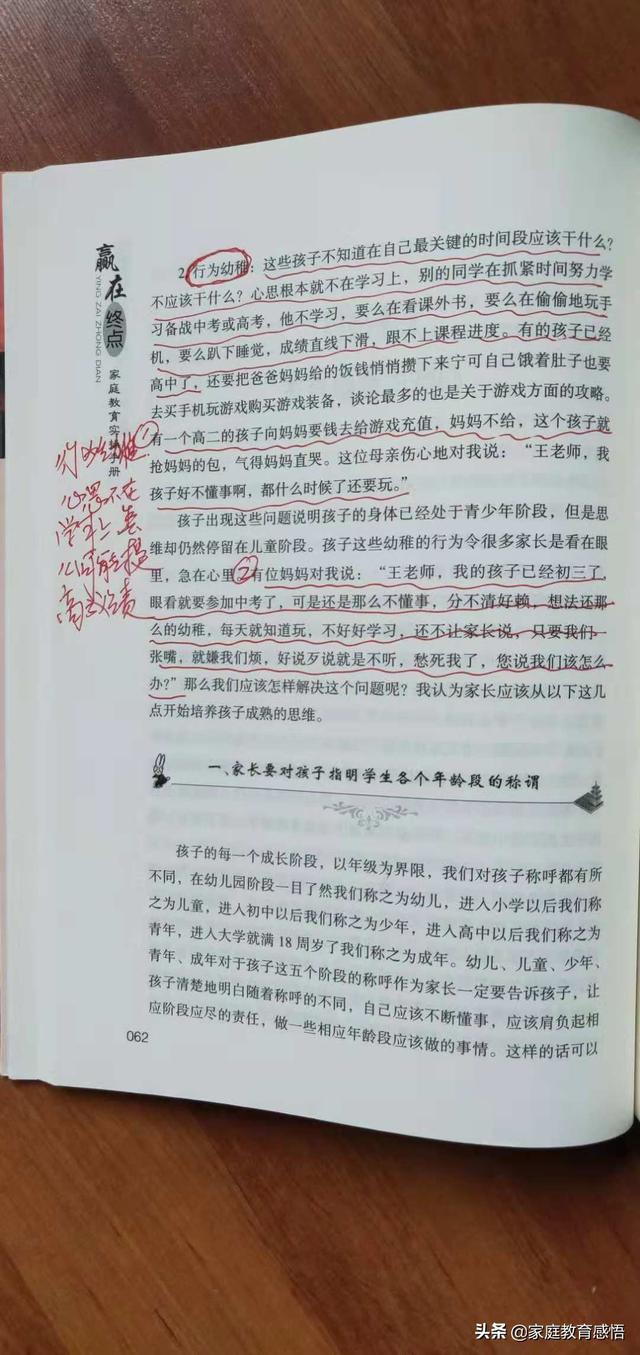 赢在终点
YING ZAI ZHONG DIAN
家庭教育实
册
2.行为幼稚：这些孩子不知道在自己最关键的时间段应该干什么？
不应该干什么？心思根本就不在学习上，别的同学在抓紧时间努力学
习备战中考或高考，他不学习，要么在看课外书，要么在偷偷地玩手
机，要么趴下睡觉，成绩直线下滑，跟不上课程进度。有的孩子已经
高中了，还要把爸爸妈妈给的饭钱悄悄攒下来宁可自己饿着肚子也要
去买手机玩游戏购买游戏装备，谈论最多的也是关于游戏方面的攻略。
有一个高二的孩子向妈妈要钱去给游戏充值，妈妈不给，这个孩子就
抢妈妈的包，气得妈妈直哭。这位母亲伤心地对我说：“王老师，我
孩子好不懂事啊，都什么时候了还要玩。”
孩子出现这些问题说明孩子的身体已经处于青少年阶段，但是思
维却仍然停留在儿童阶段。孩子这些幼稚的行为令很多家长是看在眼
里，急在心里②有位妈妈对我说：“王老师，我的孩子已经初三了，
眼看就要参加中考了，可是还是那么不懂事，分不清好赖，想法还那
么的幼稚，每天就知道玩，不好好学习，还不让家长说，只要我们一
张嘴，就嫌我们烦，好说歹说就是不听，愁死我了，您说我们该怎么
办？”那么我们应该怎样解决这个问题呢？我认为家长应该从以下这几
点开始培养孩子成熟的思维。
①
行为幼稚
心思不在
学习上
高
一、家长要对孩子指明学生各个年龄段的称谓
孩子的每一个成长阶段，以年级为界限，我们对孩子称呼都有所
不同，在幼儿园阶段一目了然我们称之为幼儿，进入小学以后我们称
之为儿童，进入初中以后我们称之为少年，进入高中以后我们称之为
青年，进入大学就满 18 周岁了我们称之为成年。幼儿、儿童、少年、
青年、成年对于孩子这五个阶段的称呼作为家长一定要告诉孩子，让
孩子清楚地明白随着称呼的不同，自己应该不断懂事，应该肩负起相
应阶段应尽的责任，做一些相应年龄段应该做的事情。这样的话可以
062
头条 @家庭教育感悟